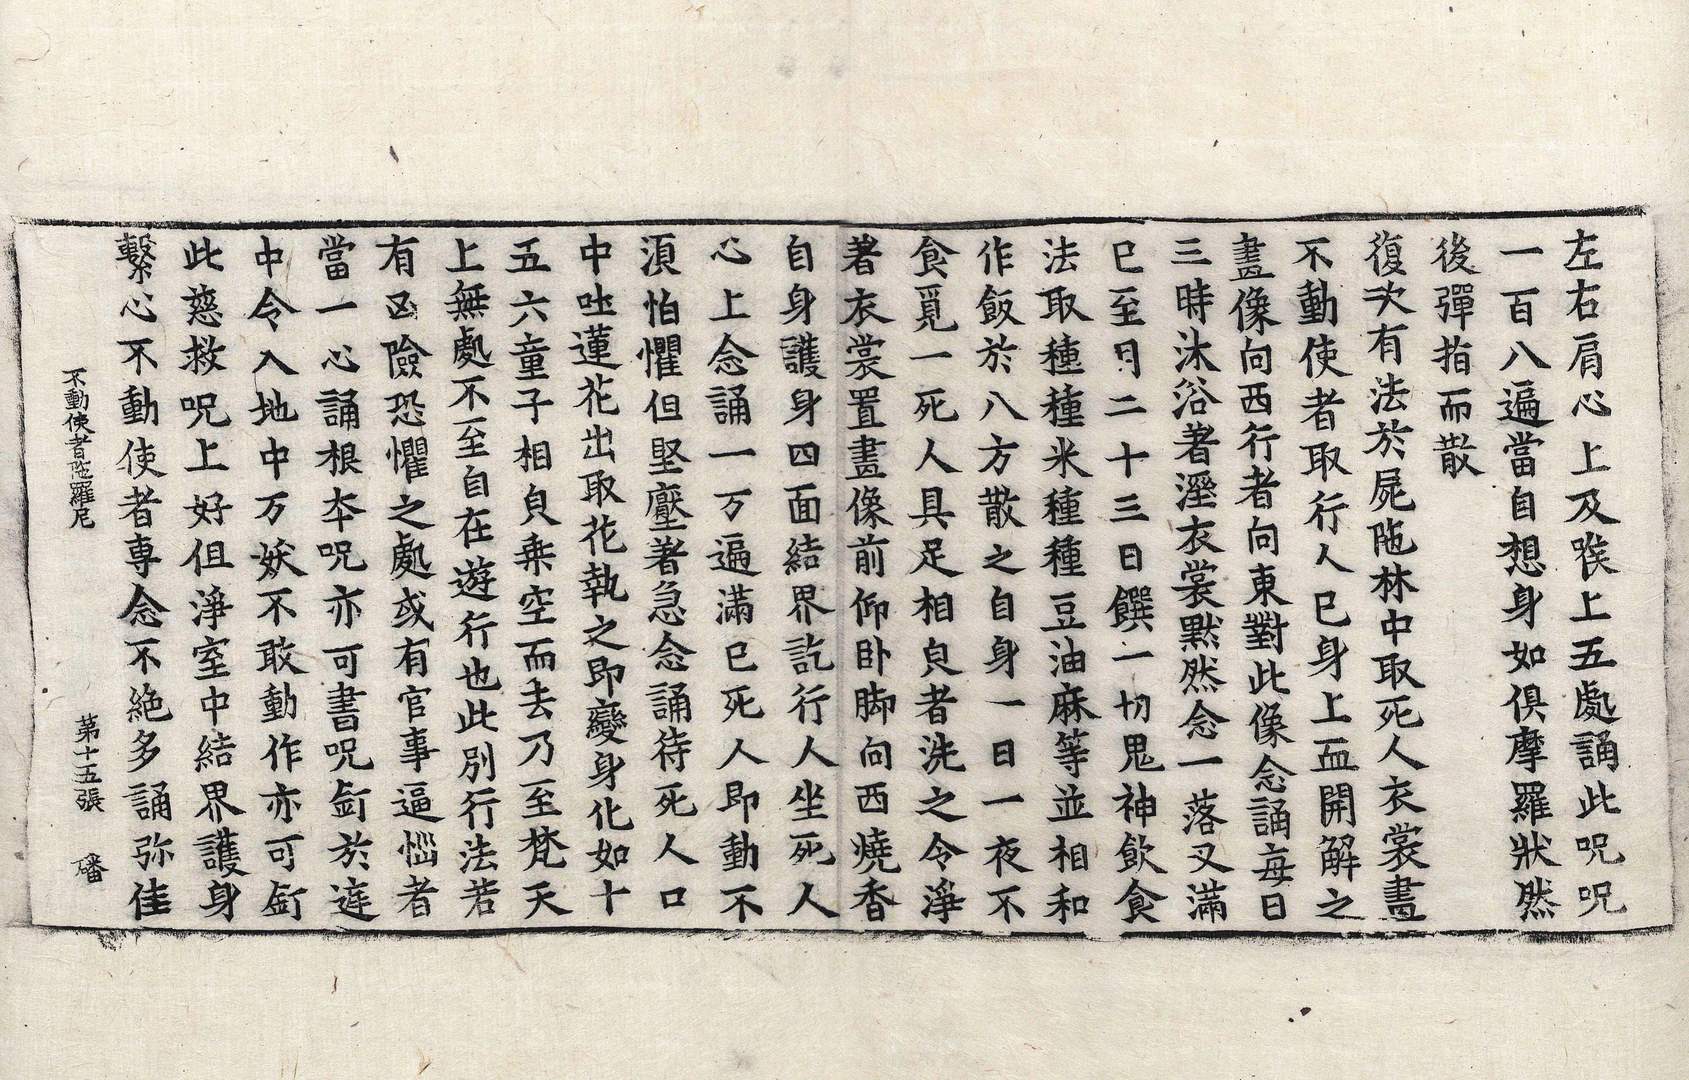 左右肩心上及喉上五處誦此呪呪
一百八遍當自想身如俱摩羅狀然
後彈指而散
復次有法於屍陁林中取死人衣裳畫
不動使者取行人已身上血開解之
畫像向西行者向東對此像念誦每日
三時沐浴著溼衣裳黙然念一落叉滿
已至月二十三日饌一切鬼神飲食
法取種種米種種豆油麻等並相和
作飯於八方散之自身一日一夜不
食覓一死人具足相皃者洗之令淨
著衣裳置畫像前仰卧脚向西燒香
自身護身四面結界訖行人坐死人
心上念誦一万遍滿已死人即動不
湏怕懼但堅壓著急念誦待死人口
中吐蓮花出取花執之即變身化如十
五六童子相皃乗空而去乃至梵天
上無處不至自在遊行也此別行法若
有凶險恐懼之處或有官事逼惱者
當一心誦根夲呪亦可書呪釘於遠
中令入地中万妖不敢動作亦可釘
此慈救呪上好但淨室中結界護身
繫心不動使者専念不絶多誦弥佳
不動使者陁羅尼　第十五張　磻